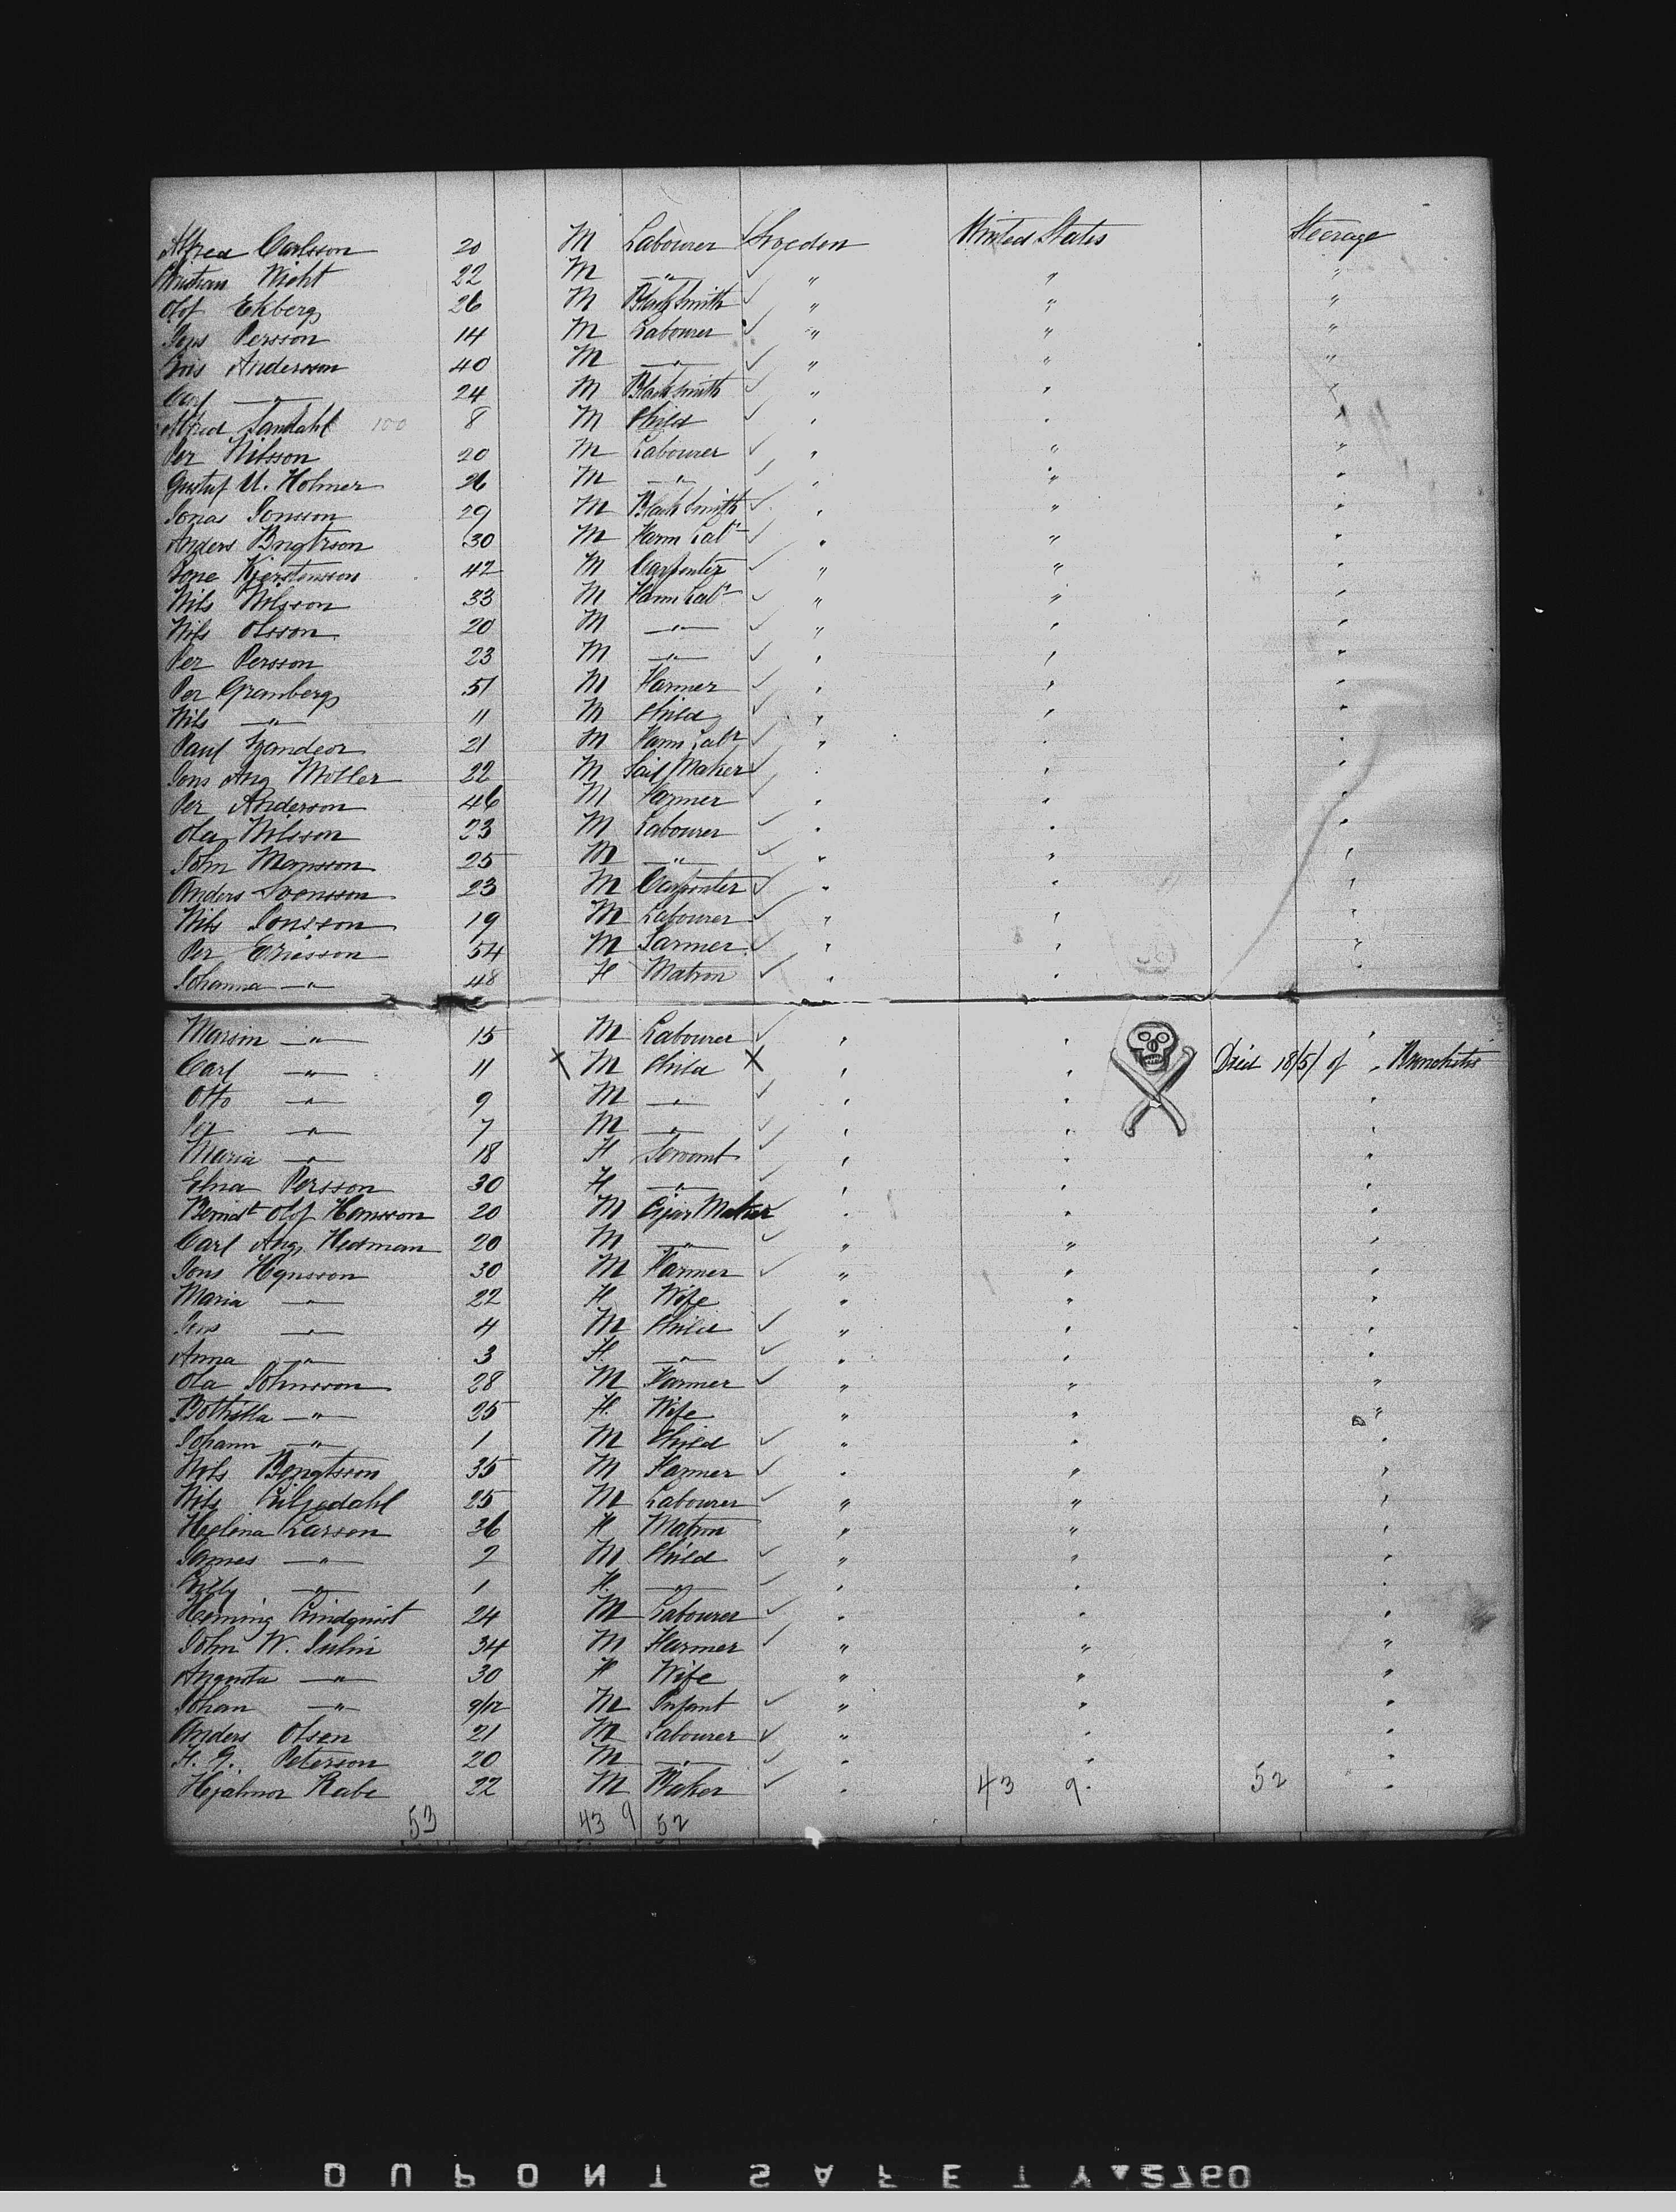 Alfred Carlsson 20 M Labourer Sweden United States Steerage
Wicht 22 M —"— " " "
Olof Ekberg 26 M Blacksmith " " "
Jens Persson 14 M Labourer " " "
Andersson 40 M —"— " " "
Carl —"— 24 M Blacksmith " " "
Alfred Sandahl 100 8 M Child " " "
Per Nilsson 20 M Labourer " " "
Gustaf U. Holmer 26 M —"— " " "
Jonas Jonsson 29 M Blacksmith " " "
Anders Bngtsson 30 M Farm Labr " " "
Kjerstensson 42 M Carpenter " " "
Nils Nilsson 33 M Farm Labr " " "
Nils Olsson 20 M —"— " " "
Per Persson 23 M —"— " " "
Per Granberg 51 M Farmer " " "
Nils —"— 11 M Child " " "
Paul 21 M Farm Labr " " "
Jens Aug Moller 22 M Sail Maker " " "
Per Anderson 46 M Farmer " " "
Ola Nilsson 23 M Labourer " " "
John Monsson 25 M —"— " " "
Anders Svensson 23 M Carpenter " " "
Nils Jonsson 19 M Labourer " " "
Per Ericsson 54 M Farmer " " "
Johanna —"— 48 F Matron " " "
—"— 15 M Labourer " " "
Carl —"— 11 X M Child X " " Died 18/5/ of " Bronchitis
Otto —"— 9 M —"— " " "
Per —"— 7 M —"— " " "
Maria —"— 18 F Servant " " "
Elna Persson 30 F —"— " " "
Berndt Olof Hansson 20 M Cigar Maker " " "
Carl Aug Hedman 20 M —"— " " "
Jons 30 M Farmer " " "
Maria —"— 22 F Wife " " "
Jens —"— 4 M Child " " "
Anna —"— 3 F. —"— " " "
Ola Johnsson 28 M Farmer " " "
Bothilla —"— 25 F. Wife " " "
Johann —"— 1 M Child " " "
Nils Bengtsson 35 M Farmer " " "
Nils Liljedahl 25 M Labourer " " "
Helena Larson 36 F Matron " " "
James —"— 2 M Child " " "
—"— 1 F. —"— " " "
Heming Lindquist 24 M Labourer " " "
John W. Julin 34 M Farmer " " "
Augusta —"— 30 F Wife " " "
Johan —"— 9/12 M Infant " " "
Anders Olsen 21 M Labourer " " "
F. G. Peterson 20 M —"— " " "
Hjalmar Rabe 22 M Baker " 43 9 " 52 "
53 43 9 52
DUPONT SAFETY 2760